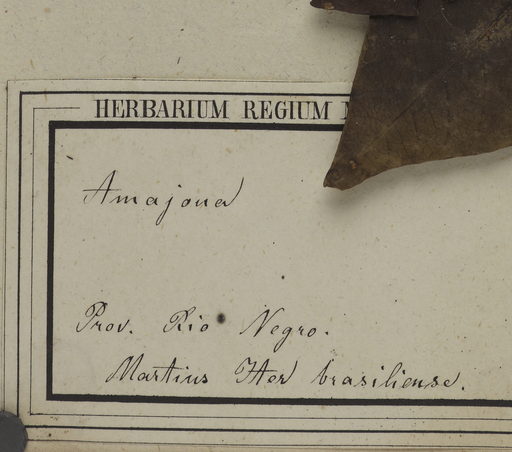 HERBARIUM REGIUM
Amajoua
Prov. Rio Negro.
Martius Iter brasiliense.